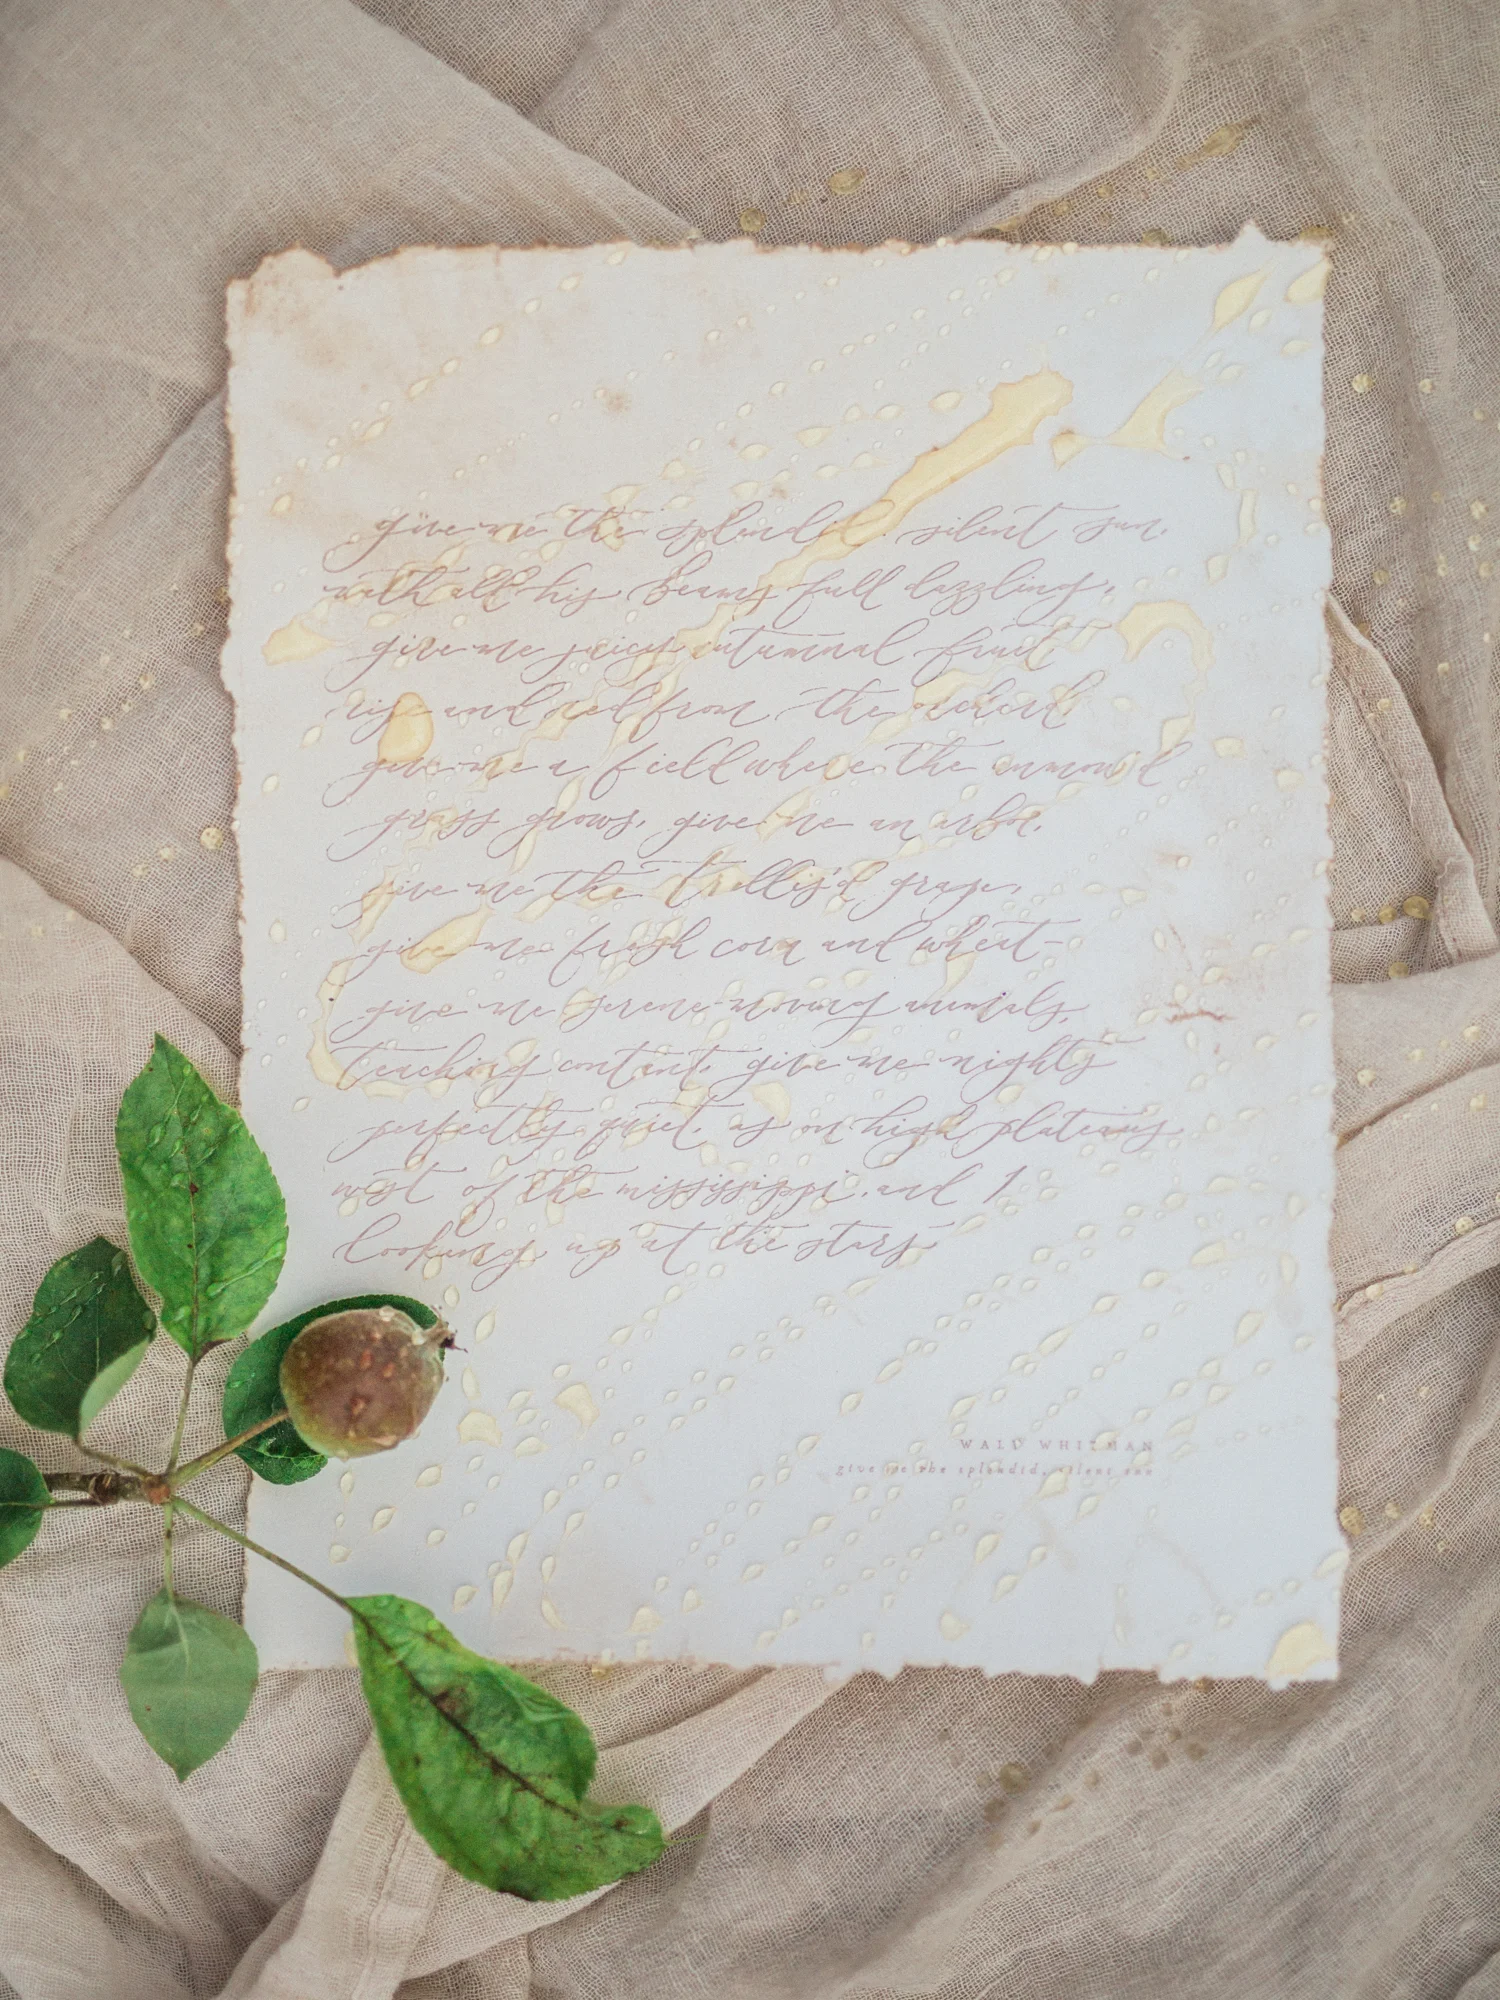 give me the splendid silent sun,
with all his beams full dazzling,
give me juicy autumnal fruit
ripe and red from the orchard
give me a field where the unmow'd
grass grows, give me an arbor,
give me the trellis'd grape,
give me fresh corn and wheat—
give me serene-moving animals,
teaching content, give me nights
perfectly quiet, as on high plateaus
west of the mississippi, and I
looking up at the stars
WALD WHITMAN
give me the splendid, silent sun